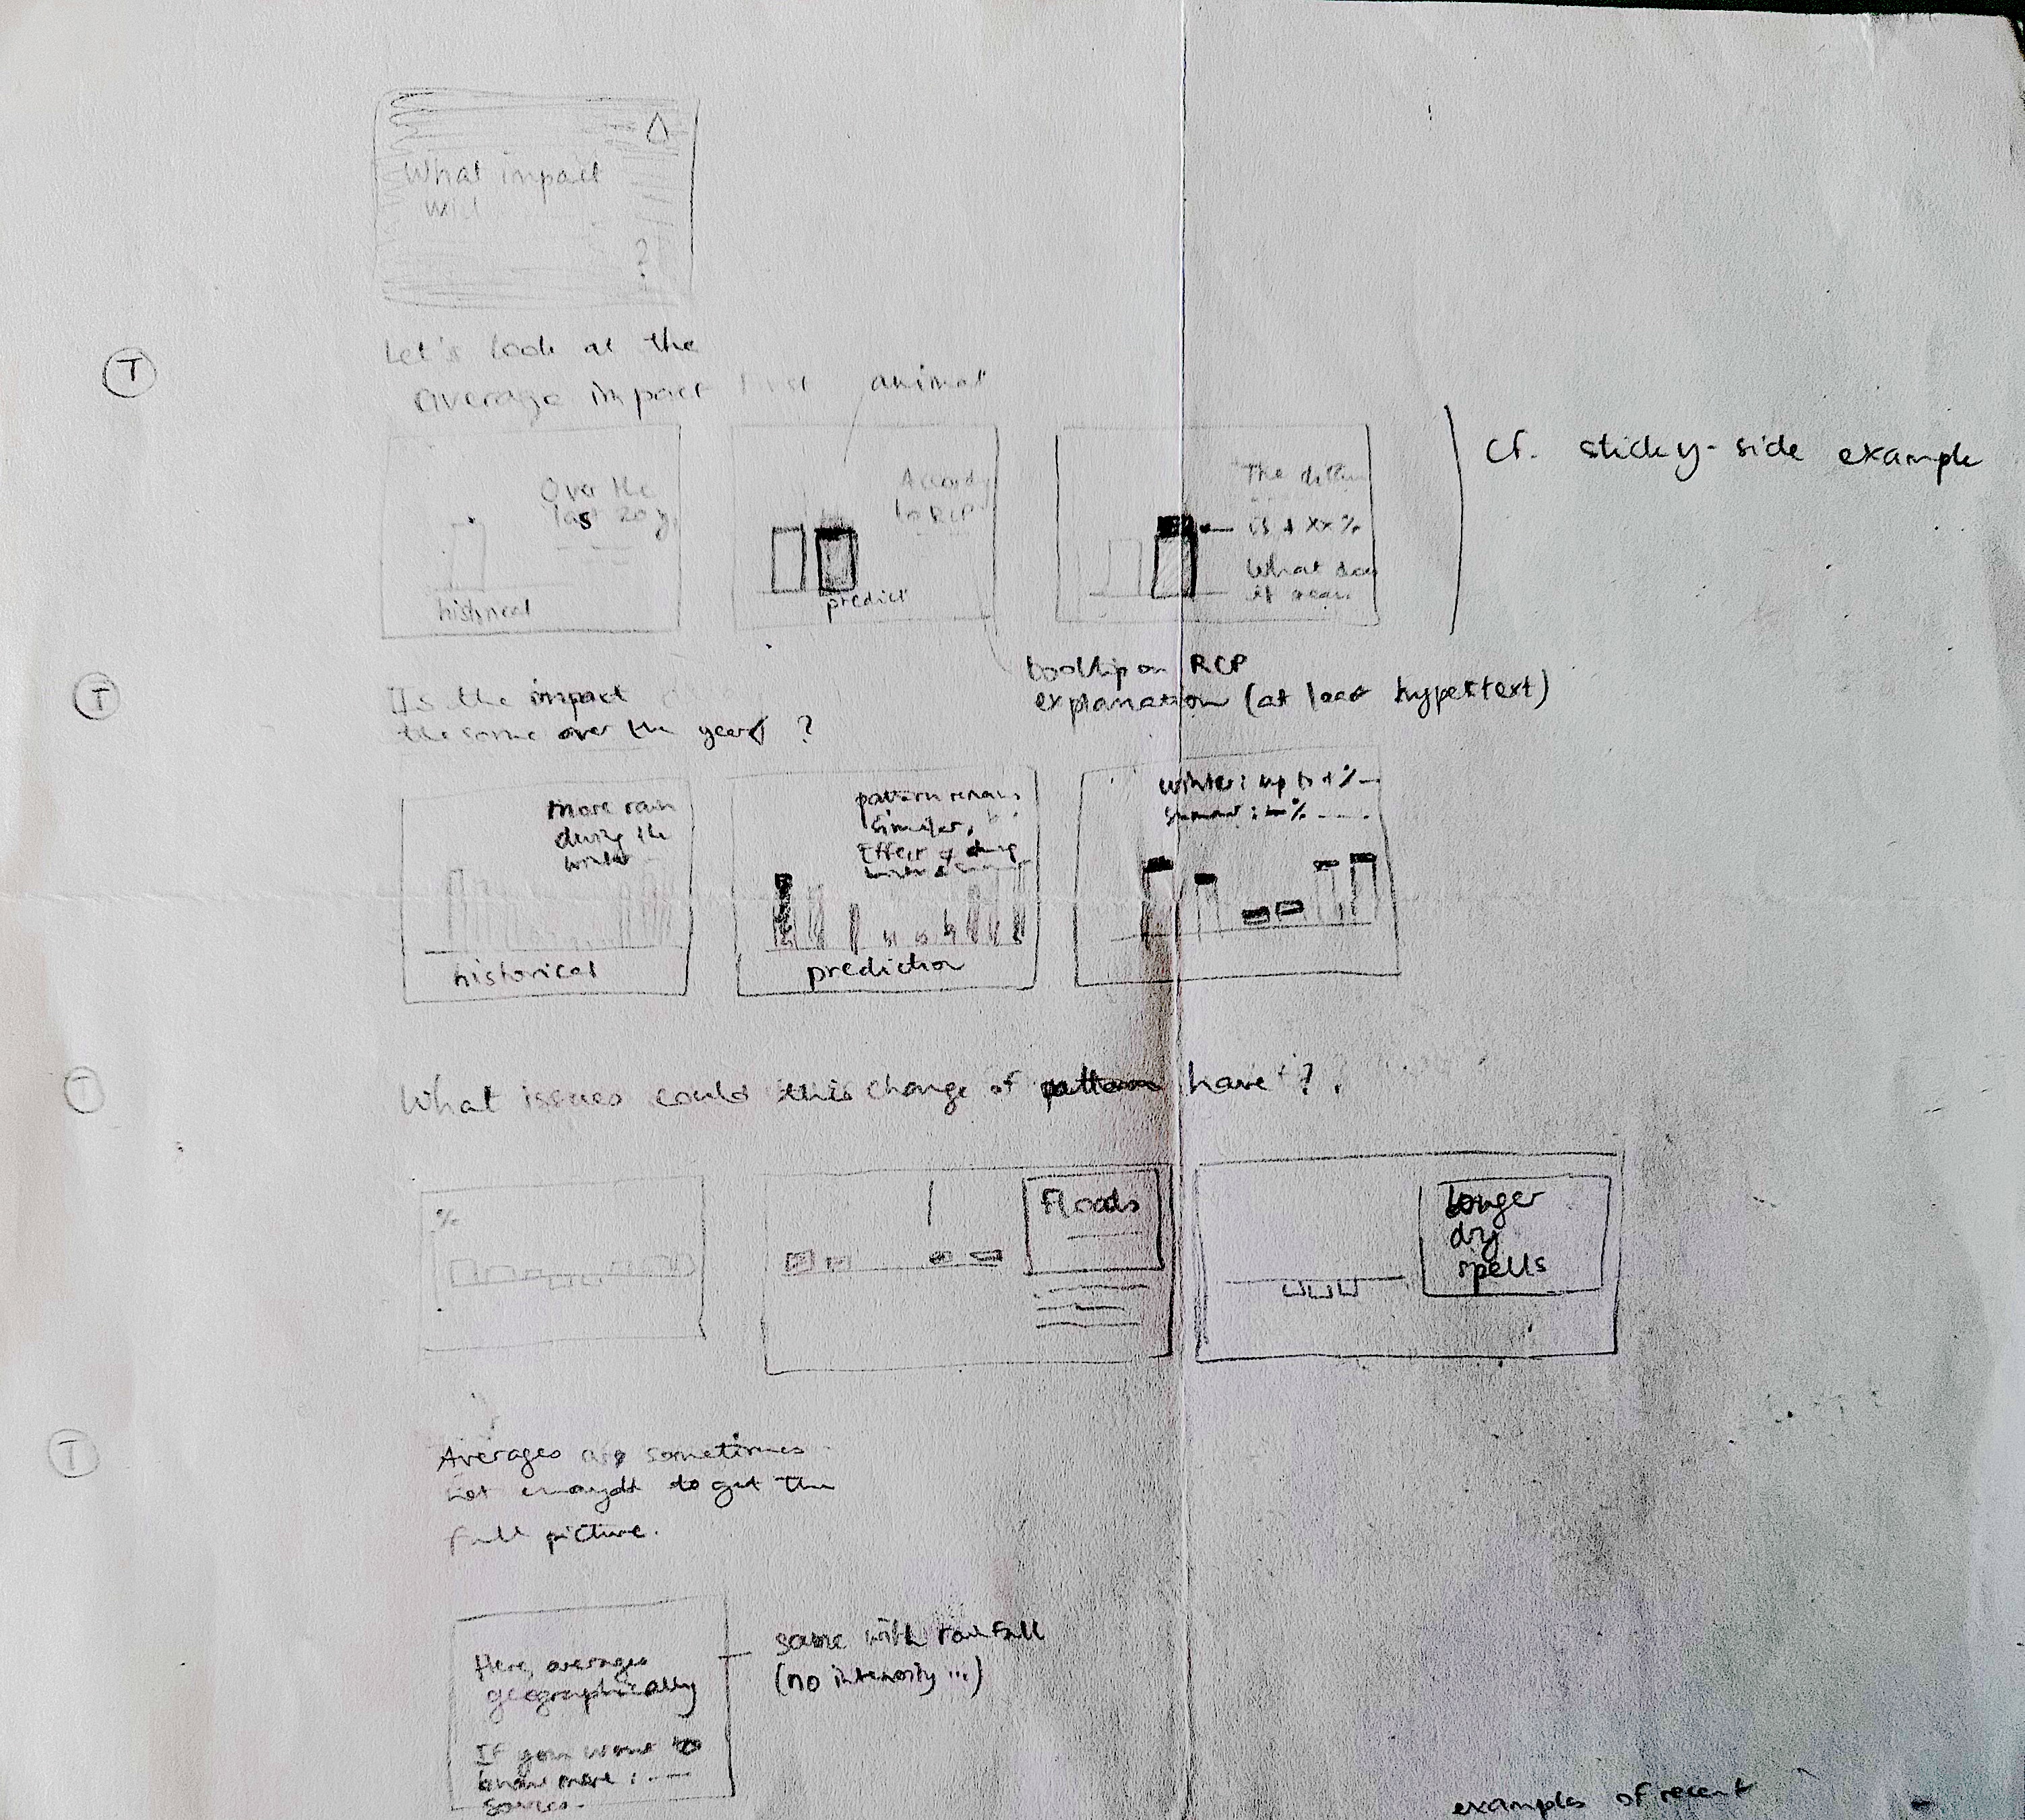 What impact
will
?
T
Let's look at the
average impact first
animat
Over the
last 20 y.
historical
to RCP
predict
The
is + xx %
What does
it mean
cf. sticky-side example
tooltip on RCP
explanation (at least hypertext)
T
Is the impact
the same over the year ?
more rain
during the
winter
historical
pattern remains
similar,
Effect
prediction
winter : up to + %
summer : - %
T
What issues could this change of pattern have ?
%
Floods
longer
dry
spells
T
Averages are sometimes
not enought to get the
full picture.
Here, averages
geographically
If you want to
know more :
sources.
same with rainfall
(no intensity ...)
examples of recent